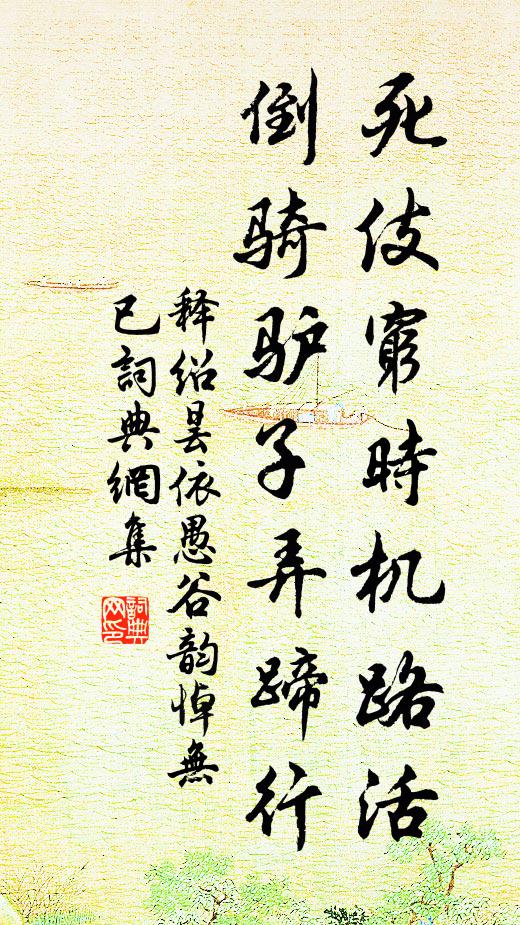 死伎窮時机路活
倒骑驴子弄蹄行
释绍昙依愚谷韵悼無
已詞典網集
詞典网印